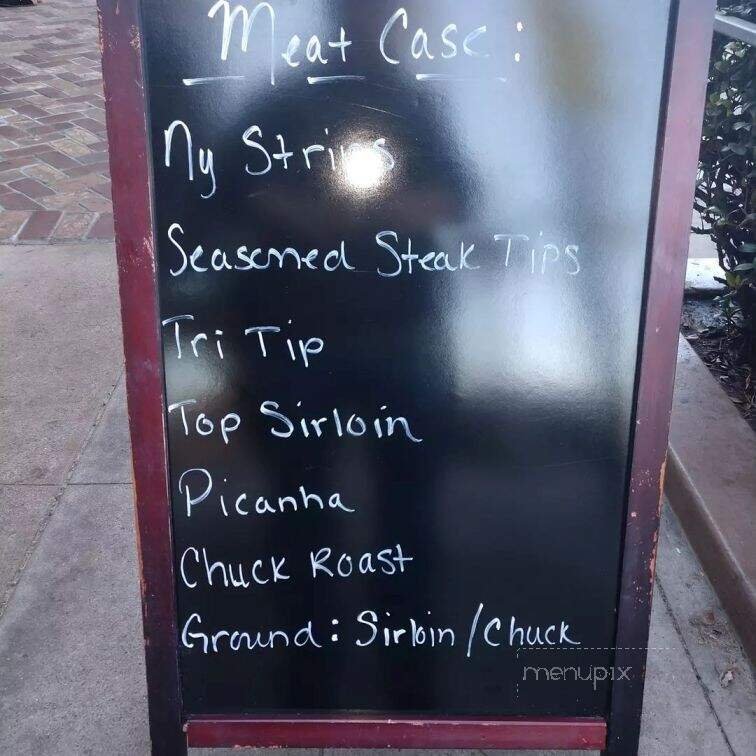 Meat Case:
Ny Strips
Seasoned Steak Tips
Tri Tip
Top Sirloin
Picanha
Chuck Roast
Ground: Sirloin/Chuck
menupix